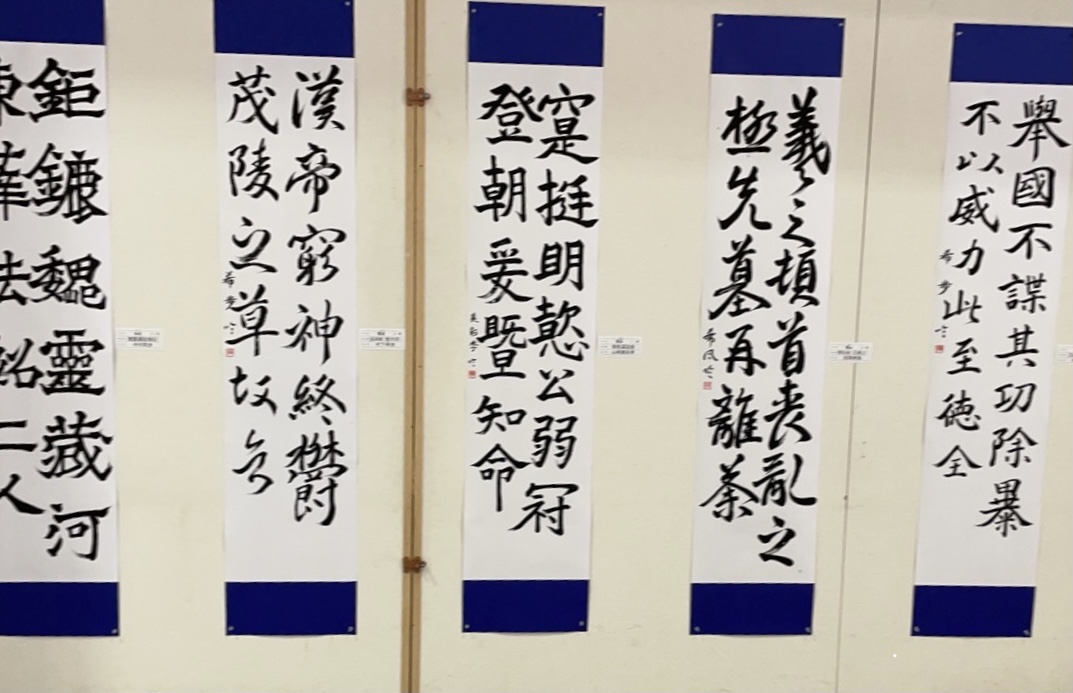 舉國不謀其功除暴
不以威力此至德全
羲之頓首喪亂之
極先墓再離荼
寔挺明懿公弱冠
登朝爰曁知命
漢帝窮神終鬱
茂陵之草故
鉅鏕魏靈藏河
東薛法紹二人